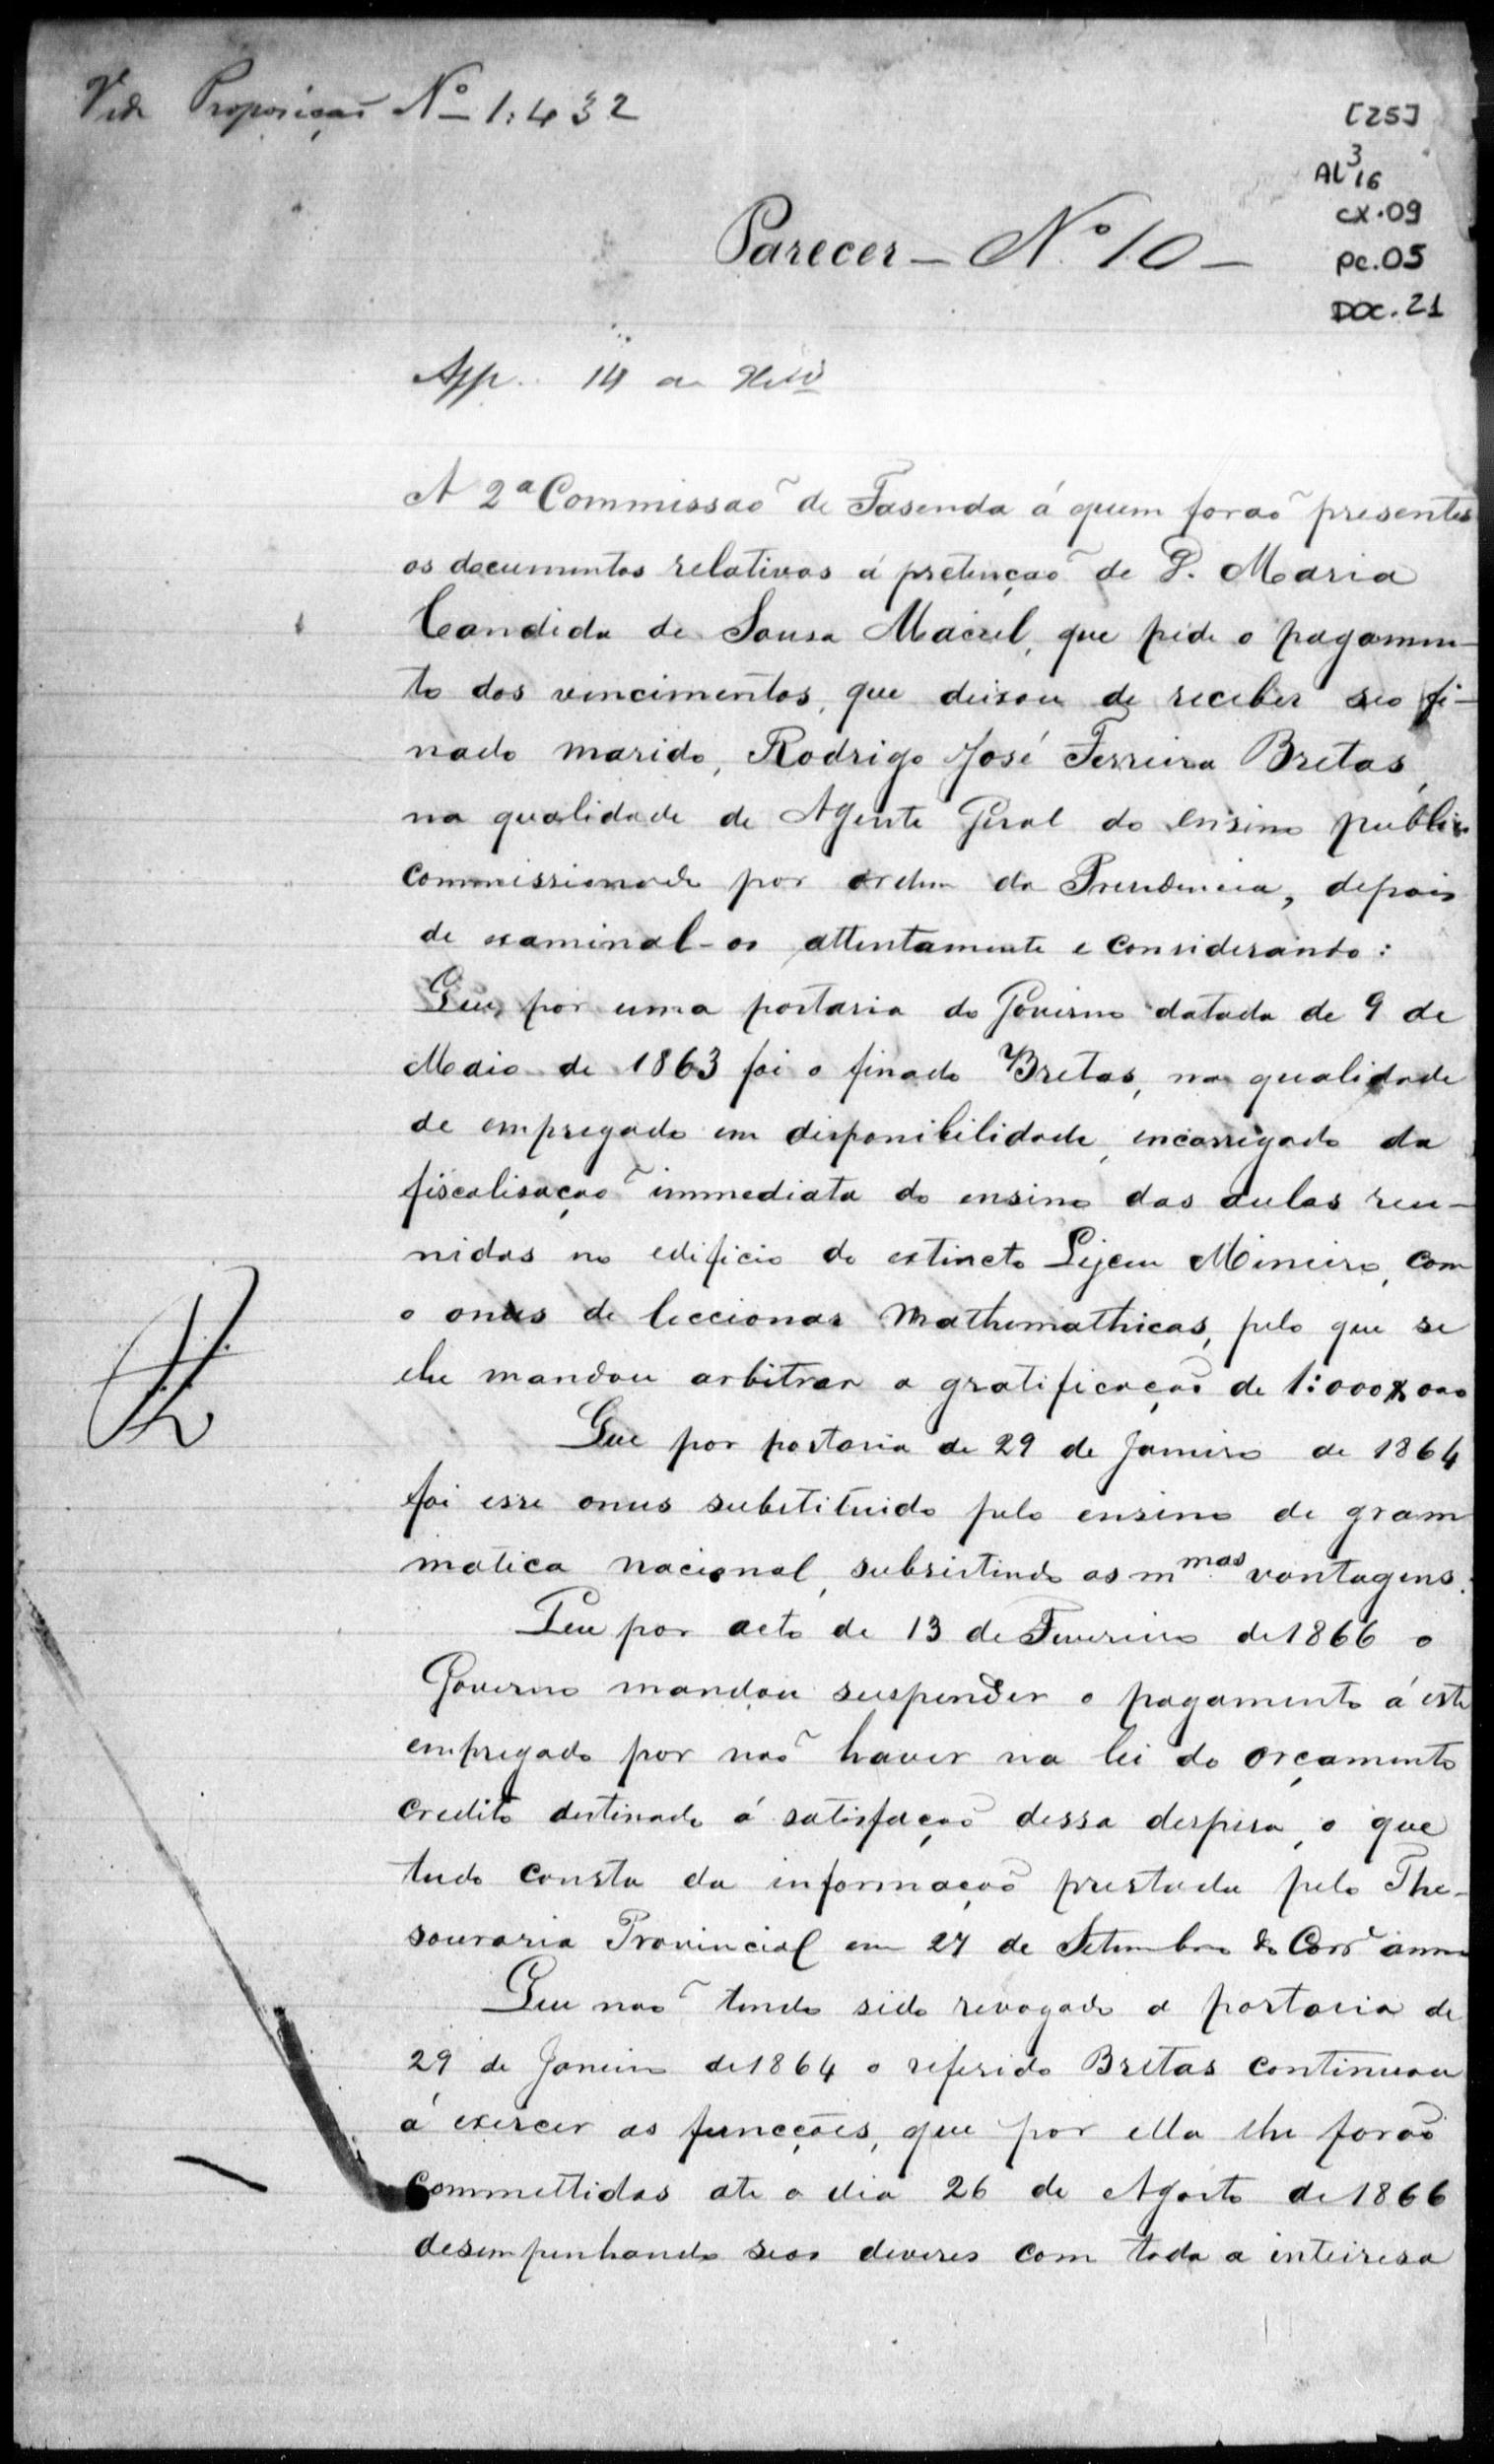 Vide Proposiçaõ Nº 1:432
[25]
AL 3 16
CX.09
PC.05
DOC.21
Parecer — Nº 10 —
App. 14 de
A 2ª Commissaõ de Fasenda á quem foraõ presentes
os documentos relativos á pretençaõ de D. Maria
Candida de Sousa Maciel, que pede o pagamen-
to dos vencimentos, que deixou de receber seo fi-
nado marido, Rodrigo José Ferreira Bretas,
na qualidade de Agente Geral do ensino publico
commissionado por ordem da Presidencia, depois
de examinal-os attentamente e considerando:
Que por uma portaria do Governo datada de 9 de
Maio de 1863 foi o finado Bretas, na qualidade
de empregado em disponibilidade, encarregado da
fiscalisaçaõ immediata do ensino das aulas reu-
nidas no edificio do extincto Lyceu Mineiro, com
o onus de leccionar Mathemathicas, pelo que se
lhe mandou arbitrar a gratificaçaõ de 1:000$000
Que por portaria de 29 de Janeiro de 1864
foi esse onus substituido pelo ensino de gram
matica nacional, subsistindo as mmas vantagens.
Que por acto de 13 de Fevereiro de 1866 o
Governo mandou suspender o pagamento á este
empregado por naõ haver na lei do orçamento
credito destinado á satisfaçaõ dessa despesa, o que
tudo consta da informaçaõ prestada pela The-
souraria Provincial em 27 de Setembro do Corr.e anno
Que naõ tendo sido revogada a portaria de
29 de Janeiro de 1864 o referido Bretas continuou
á exercer as funcções, que por ella lhe foraõ
commettidas até o dia 26 de Agosto de 1866
desempenhando seos deveres com toda a inteiresa